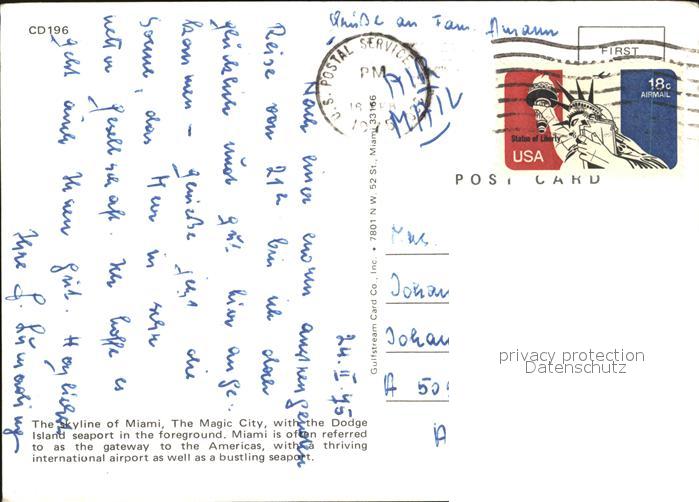 CD196
Grüße an Fam. Amann
FIRST
U.S. POSTAL SERVICE
PM
18c
AIRMAIL
Statue of Liberty
USA
AIR
MAIL
POST CARD
24. II. 75
Nach einer enorm anstrengenden
Reise von 21 h bin ich doch
glücklich und gut hier ange-
kommen – genieße jetzt die
Sonne, das Meer in sehr
netter Gesellschaft. Ich hoffe es
geht auch Ihnen gut. Herzlichst
Ihre
Gulfstream Card Co., Inc. • 7801 N.W. 52 St., Miami 33166
Johan
Johan
A 50
A
privacy protection
Datenschutz
The skyline of Miami, The Magic City, with the Dodge
Island seaport in the foreground. Miami is often referred
to as the gateway to the Americas, with a thriving
international airport as well as a bustling seaport.